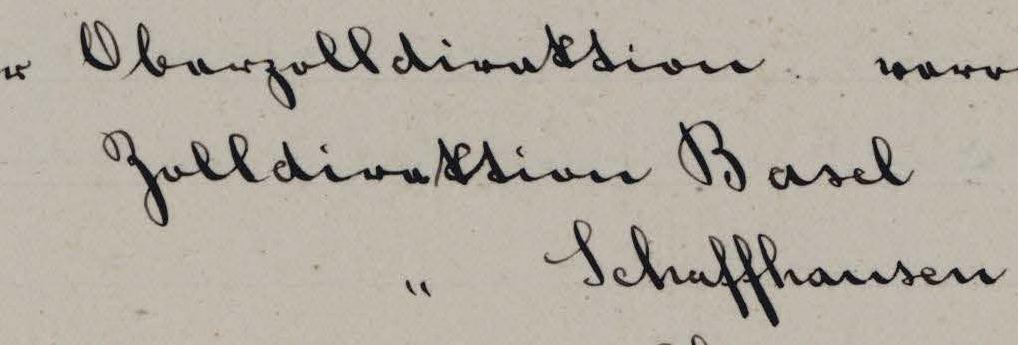 Oberzolldirektion
Zolldirektion Basel
" Schaffhausen